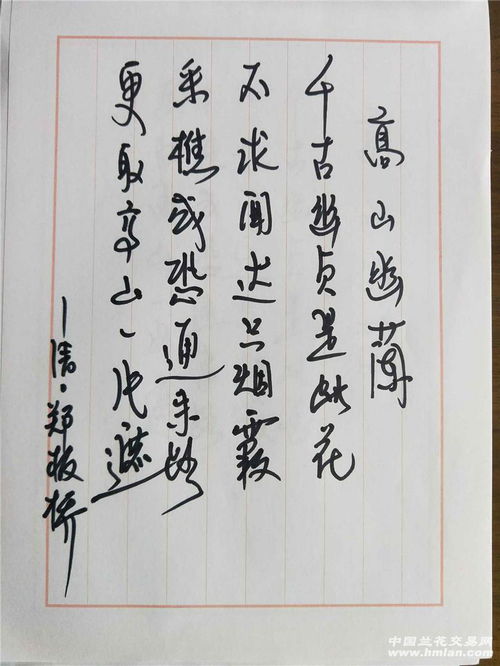 高山幽蘭
千古幽贞是此花
不求闻达只烟霞
采樵或恐通来路
更取高山一片遮
—清·郑板桥
中国兰花交易网
www.hmlan.com